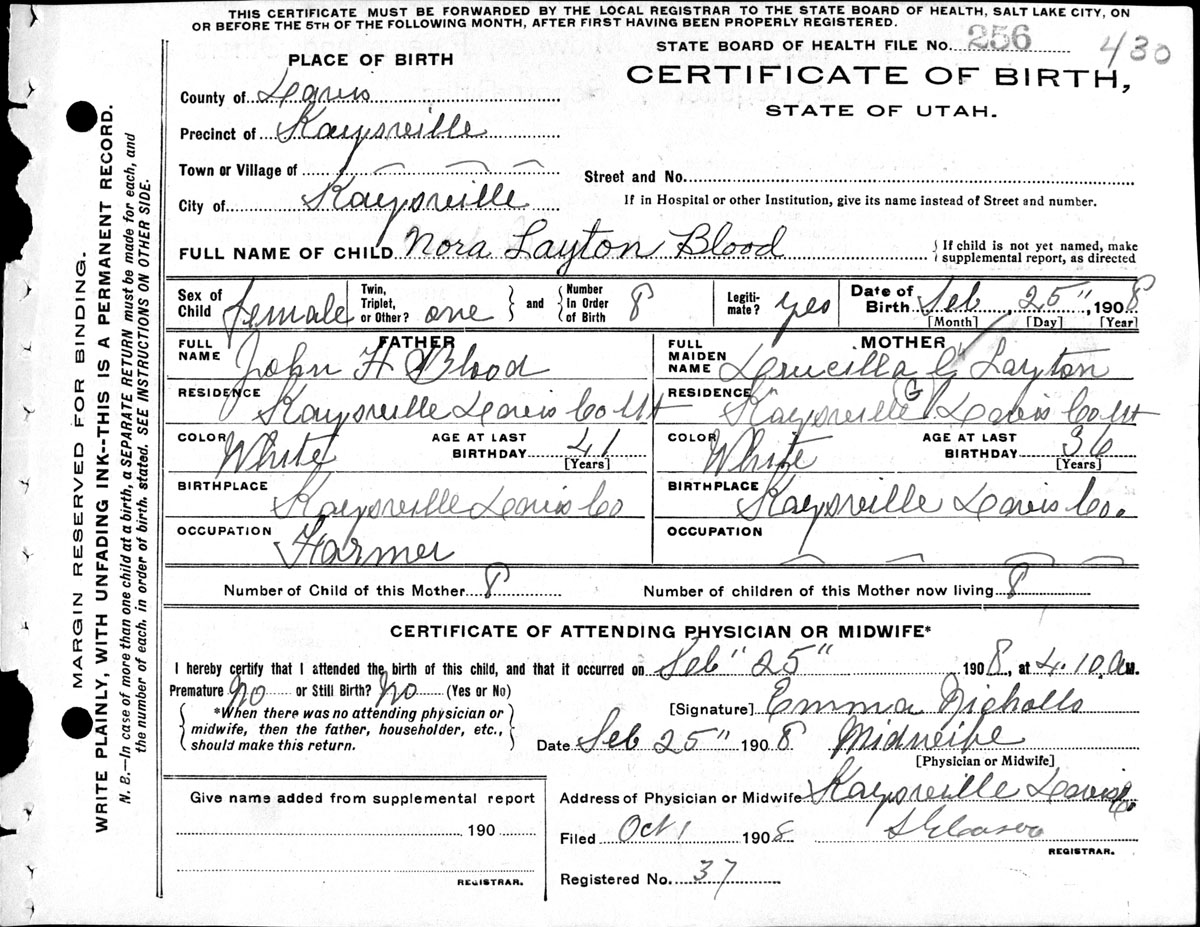 THIS CERTIFICATE MUST BE FORWARDED BY THE LOCAL REGISTRAR TO THE STATE BOARD OF HEALTH, SALT LAKE CITY, ON
OR BEFORE THE 5TH OF THE FOLLOWING MONTH, AFTER FIRST HAVING BEEN PROPERLY REGISTERED.
STATE BOARD OF HEALTH FILE No. 256 430
PLACE OF BIRTH
CERTIFICATE OF BIRTH,
STATE OF UTAH.
County of Davis
Precinct of Kaysville
Town or Village of
Street and No.
City of Kaysville
If in Hospital or other Institution, give its name instead of Street and number.
FULL NAME OF CHILD Nora Layton Blood
{If child is not yet named, make
supplemental report, as directed
Sex of Child Female
Twin, Triplet, or Other? one } and { Number In Order of Birth 8
Legiti-mate? yes
Date of Birth Feb 25", 1908
[Month] [Day] [Year]
FATHER
FULL NAME John H Blood
RESIDENCE Kaysville Davis Co Ut
COLOR White AGE AT LAST BIRTHDAY 41
[Years]
BIRTHPLACE Kaysville Davis Co
OCCUPATION Farmer
MOTHER
FULL MAIDEN NAME Drucilla G Layton
RESIDENCE Kaysville (G) Davis Co Ut
COLOR White AGE AT LAST BIRTHDAY 36
[Years]
BIRTHPLACE Kaysville Davis Co.
OCCUPATION
Number of Child of this Mother 8 Number of children of this Mother now living 8
CERTIFICATE OF ATTENDING PHYSICIAN OR MIDWIFE*
I hereby certify that I attended the birth of this child, and that it occurred on Feb" 25" 1908, at 4.10.AM.
Premature No or Still Birth? No (Yes or No)
{ *When there was no attending physician or
midwife, then the father, householder, etc.,
should make this return. }
[Signature] Emma Nicholls
Date Feb 25" 1908 Midweife
[Physician or Midwife]
Give name added from supplemental report
190
REGISTRAR.
Address of Physician or Midwife Kaysville Davis Co
Filed Oct 1 1908
REGISTRAR.
Registered No. 37
MARGIN RESERVED FOR BINDING.
WRITE PLAINLY, WITH UNFADING INK--THIS IS A PERMANENT RECORD.
N. B.—In case of more than one child at birth, a SEPARATE RETURN must be made for each, and
the number of each, in order of birth, stated. SEE INSTRUCTIONS ON OTHER SIDE.